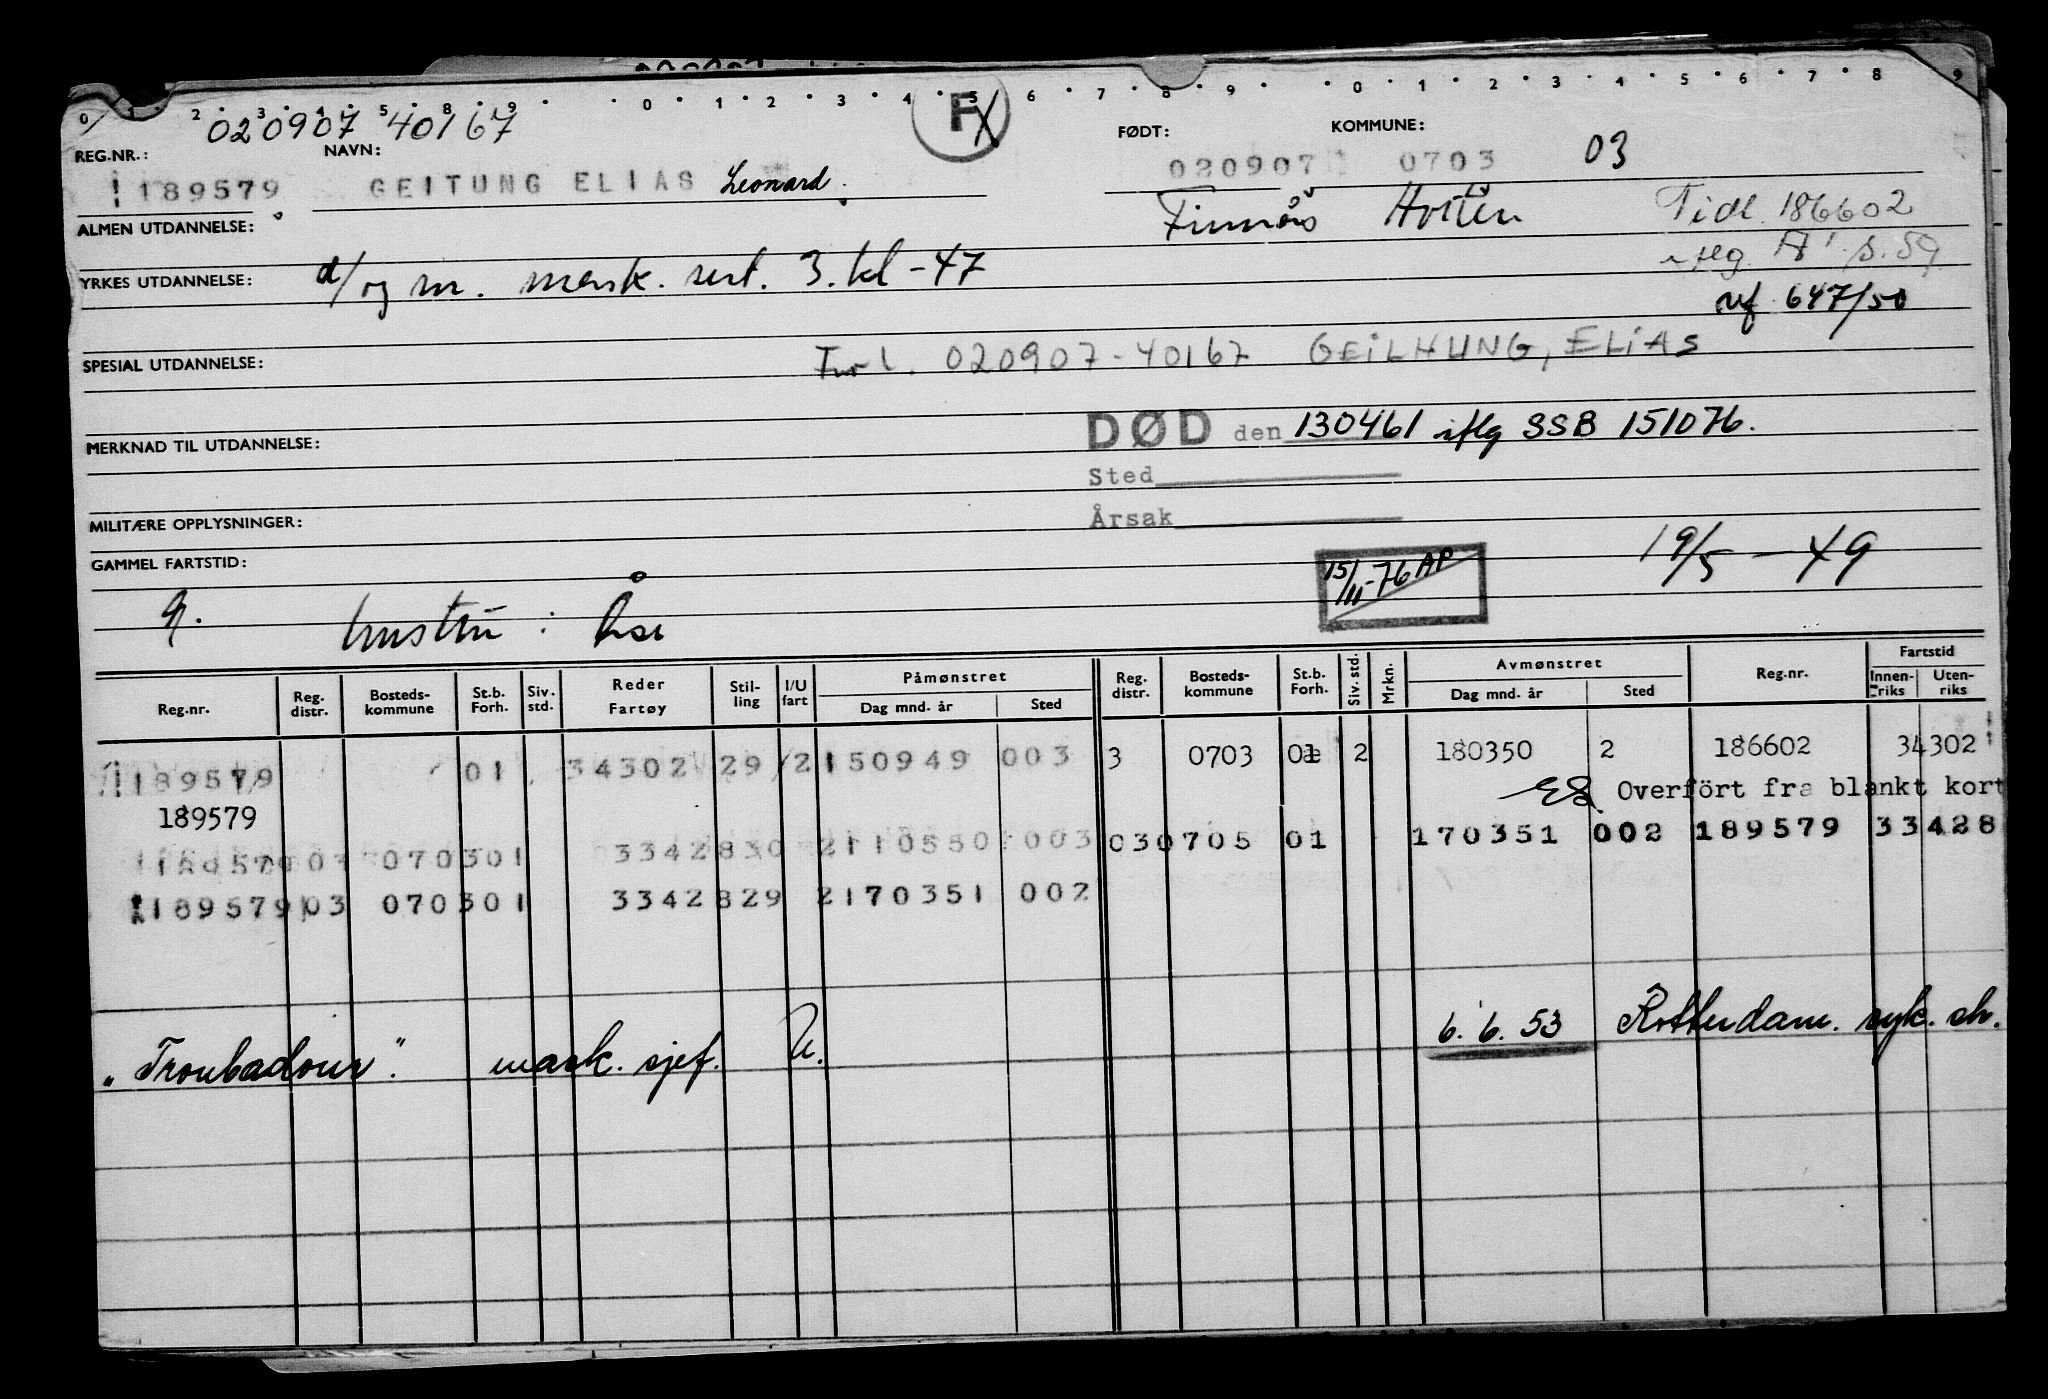 0 1 2 3 4 5 8 9 0 1 2 3 4 5 6 7 8 9 0 1 2 3 4 5 6 7 8 9
020907 40167 F
REG.NR.: NAVN: FØDT: KOMMUNE:
189579 GEITUNG ELIAS Leonard. 020907 0703 03
ALMEN UTDANNELSE: Finnås Horten Tidl. 186602
YRKES UTDANNELSE: d/og m. mask. sert. 3. kl -47 reg. A' s. 59
ref 647/50
SPESIAL UTDANNELSE: 020907-40167 GEILHUNG, ELIAS
MERKNAD TIL UTDANNELSE: DØD den 130461 iflg SSB 151076.
Sted
MILITÆRE OPPLYSNINGER: Årsak
GAMMEL FARTSTID: 15/11-76 AP 19/5-49
G. hustru: Åse
Reg.nr. Reg. distr. Bosteds- kommune St.b. Forh. Siv. std. Reder Fartøy Stil- ling I/U fart Påmønstret Dag mnd. år Sted Reg. distr. Bosteds- kommune St.b. Forh. Siv. std. Mrkn. Avmønstret Dag mnd. år Sted Reg.nr. Fartstid Innen- riks Uten- riks
189579 01 34302 29 2 150949 003 3 0703 01 2 180350 2 186602 34302
189579 Overfört fra blankt kort
189579 03 0703 01 33428 30 2 110550 003 03 0705 01 170351 002 189579 33428
189579 03 0703 01 33428 29 2 170351 002
"Troubadour". mask. sjef. U. 6. 6. 53 Rotterdam. syk. ch.